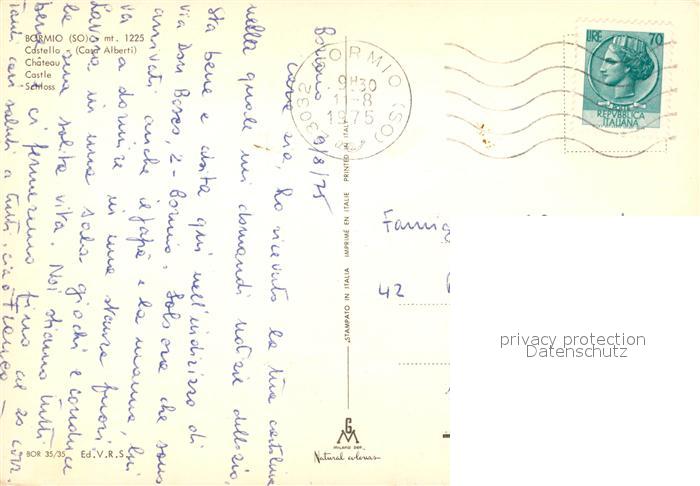 BORMIO (SO) - mt. 1225
Castello - (Casa Alberti)
Château
Castle
Schloss
Bormio 9/8/75
Cara zia, ho ricevuto la tua cartolina
nella quale mi domandi notizie dello zio,
sta bene e abita qui nell'indirizzo di
via Don Bosco, 2 - Bormio. Solo ora che sono
arrivati anche il papà e la mamma, lui
va a dormire in una stanza fuori.
Lavora in una sala giochi e conduce
la sua solita vita. Noi stiamo tutti
bene ci fermeremo fino al 20 
tanti cari saluti a tutti, ciao Franca
BOR 35/35 Ed. V.R.S.
STAMPATO IN ITALIA IMPRIMÉ EN ITALIE PRINTED IN ITALY
GM
MILANO DEP.
Natural colorias
BORMIO (SO)
9H30
11-8
1975
23032
LIRE 70
POSTE
REPVBBLICA
ITALIANA
Famig
42
privacy protection
Datenschutz